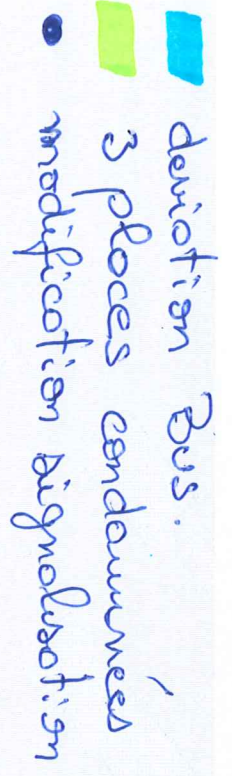 deviation Bus.
3 places condamnées
modification signalisation